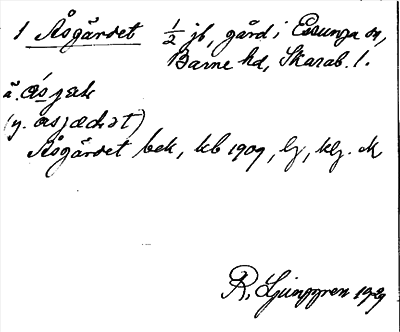 1 Åsgärdet 1/2 jb, gård i Essunga sn,
Barne hd, Skarab. l.
ä. åsjæk
(y. åsjædət)
Åsgärdet bek, kb 1909, lj, klg. M
R. Ljunggren 1929